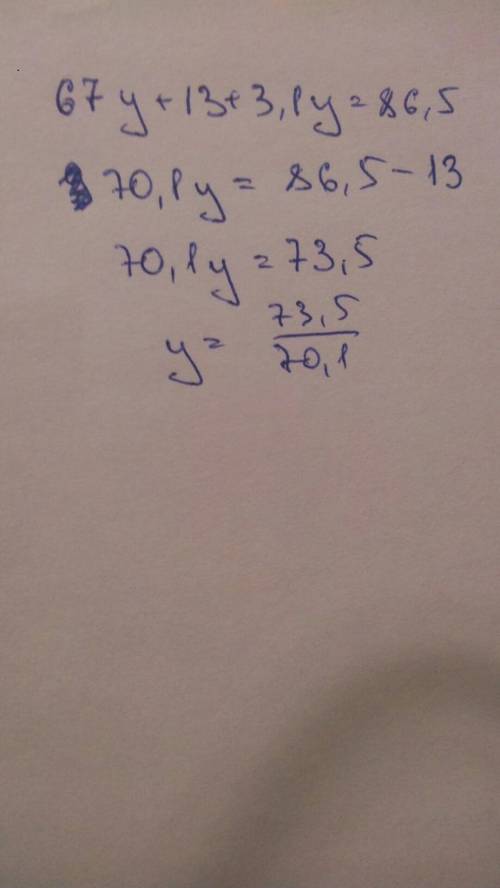 67y+13+3,1y=86,5
70,1y=86,5-13
70,1y=73,5
y=73,5/70,1